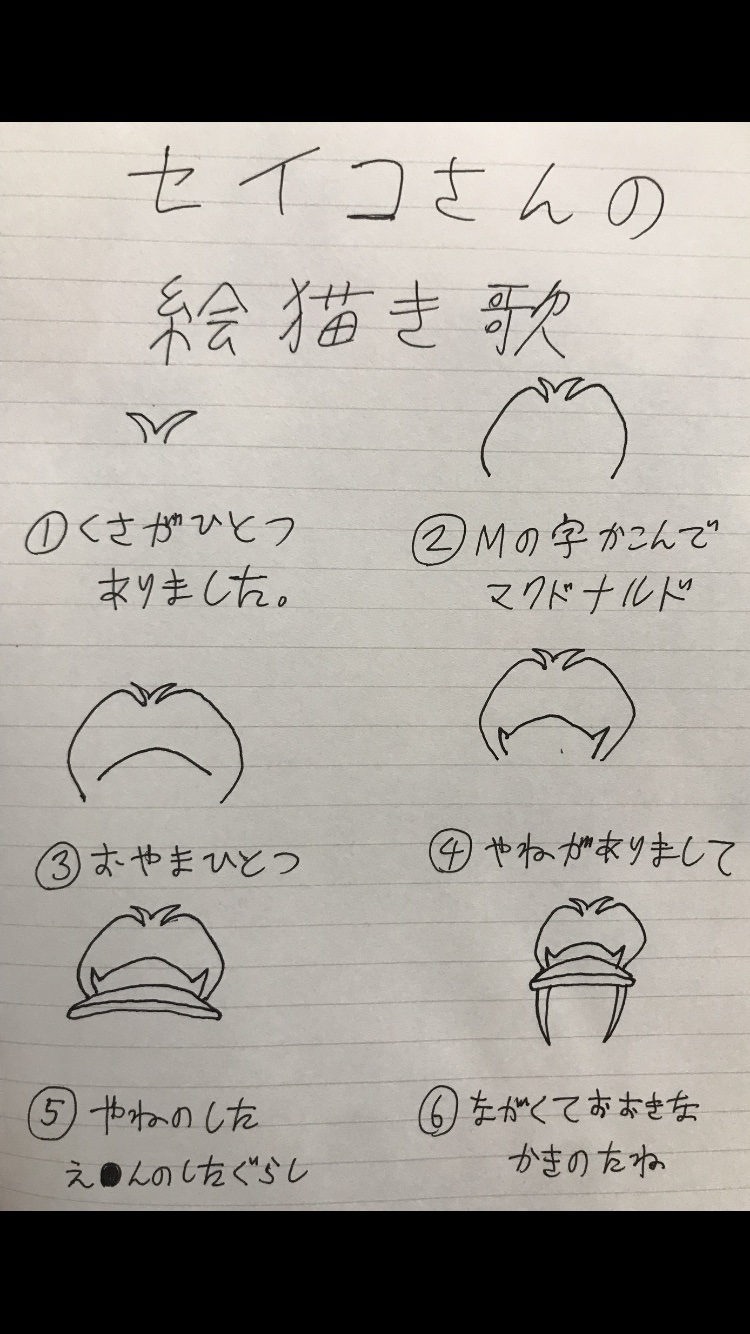 セイコさんの
絵描き歌
①くさがひとつ
ありました。
②Mの字かこんで
マクドナルド
③おやまひとつ
④やねがありまして
⑤やねのした
え●んのしたぐらし
⑥ながくておおきな
かきのたね